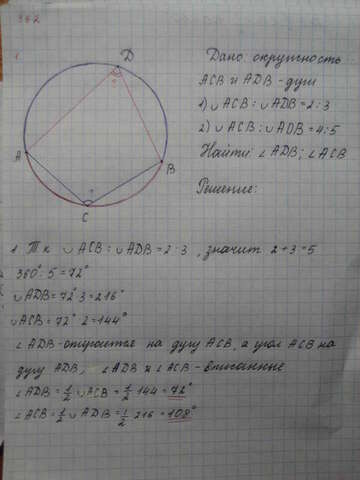 362
1.
D
A
B
C
?
?
Дано: окружность
ACB и ADB - дуги
1) ∪ACB : ∪ADB = 2 : 3
2) ∪ACB : ∪ADB = 4 : 5
Найти: ∠ADB; ∠ACB
Решение:
1. Т.к ∪ACB : ∪ADB = 2 : 3, значит 2+3=5
360° : 5 = 72°
∪ADB = 72°·3 = 216°
∪ACB = 72°·2 = 144°
∠ADB - опирается на дугу ACB, а угол ACB на
дугу ADB, ∠ADB и ∠ACB - вписанные
∠ADB = 1/2 ∪ACB = 1/2 · 144 = 72°
∠ACB = 1/2 ∪ADB = 1/2 · 216 = 108°